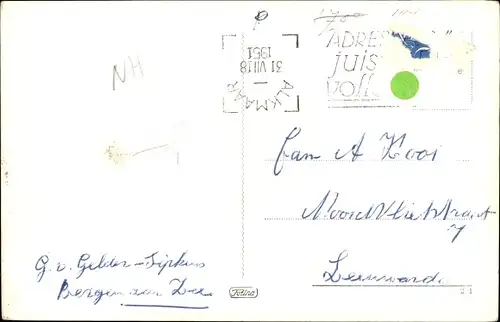 NH
ALKMAAR
31 VII 18
1951
ADRES
juis
voll
Fam A Kooi
Noordvlietstraat
7
Leeuwarde
G. v. Gelder-Sipkens
Bergen aan Zee